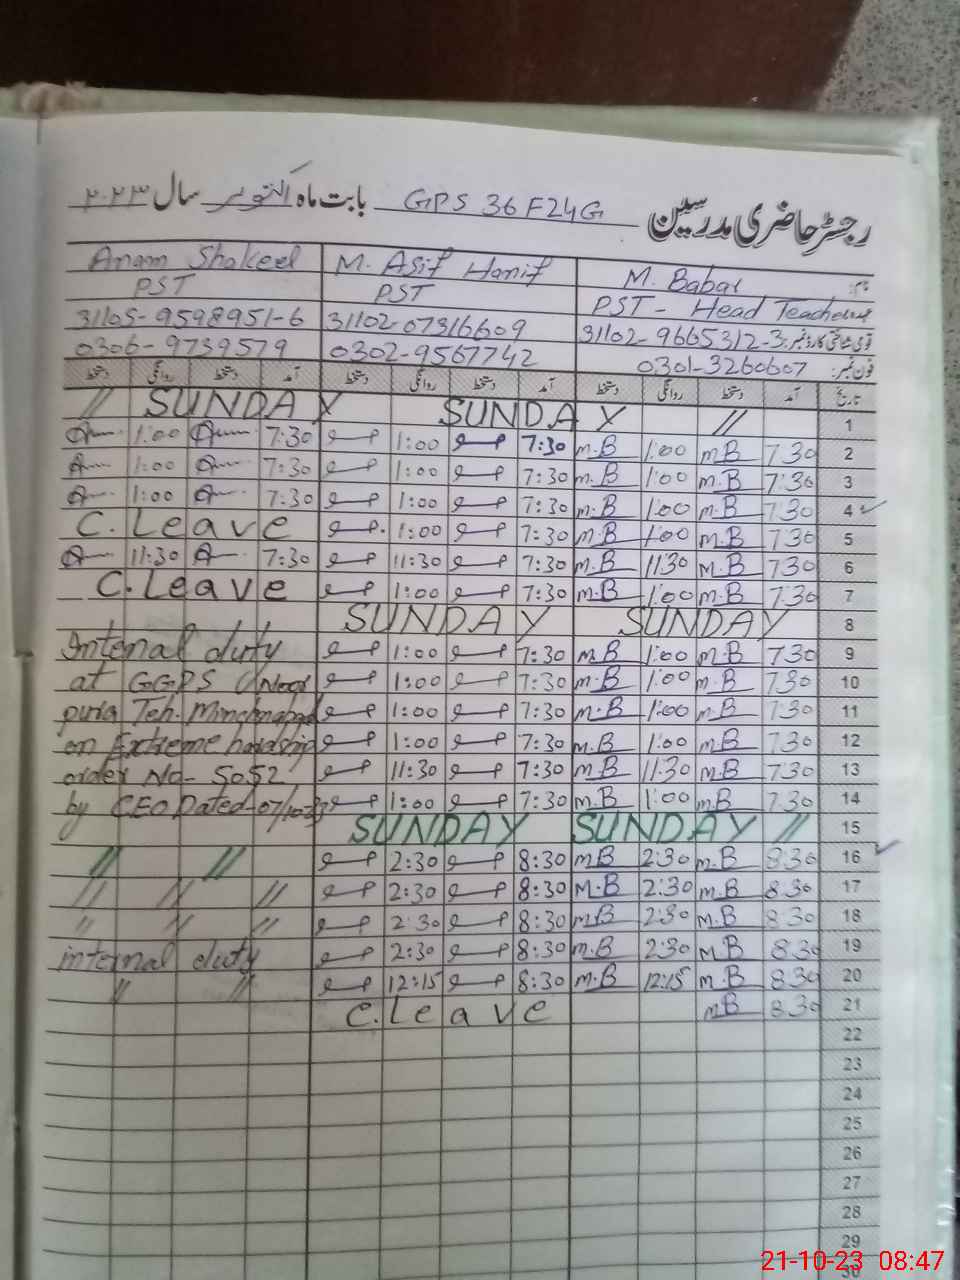 رجسٹر حاضری مدرسین GPS 36 F24G بابت ماہ اکتوبر سال ۲۰۲۳
Anam Shakeel M. Asif Hanif M. Babar نام:
PST PST PST - Head Teacher
31105-9598951-6 31102-07316609 31102-9665312-3 قومی شناختی کارڈ نمبر:
0306-9739579 0302-9567742 0301-3260607 فون نمبر:
دستخط روانگی دستخط آمد دستخط روانگی دستخط آمد دستخط روانگی دستخط آمد تاریخ
// SUNDAY SUNDAY // 1
1:00 7:30 1:00 7:30 m.B 1:00 m.B 7:30 2
1:00 7:30 1:00 7:30 m.B 1:00 m.B 7:30 3
1:00 7:30 1:00 7:30 m.B 1:00 m.B 7:30 4
C. Leave 1:00 7:30 m.B 1:00 m.B 7:30 5
11:30 7:30 11:30 7:30 m.B 11:30 M.B 7:30 6
C. Leave 1:00 7:30 m.B 1:00 m.B 7:30 7
SUNDAY SUNDAY 8
Internal duty 1:00 7:30 m.B 1:00 m.B 7:30 9
at GGPS 1:00 7:30 m.B 1:00 m.B 7:30 10
puria Teh. Minchinabad 1:00 7:30 m.B 1:00 m.B 7:30 11
on Extreme hardship 1:00 7:30 m.B 1:00 m.B 7:30 12
order No- 5052 11:30 7:30 m.B 11:30 m.B 7:30 13
by CEO Dated-07/10-23 1:00 7:30 m.B 1:00 m.B 7:30 14
SUNDAY SUNDAY // 15
// // 2:30 8:30 m.B 2:30 m.B 8:30 16
// // // 2:30 8:30 M.B 2:30 m.B 8:30 17
// // // 2:30 8:30 m.B 2:30 M.B 8:30 18
internal duty 2:30 8:30 m.B 2:30 M.B 8:30 19
// // 12:15 8:30 m.B 12:15 m.B 8:30 20
C. leave m.B 8:30 21
22
23
24
25
26
27
28
29
30
21-10-23 08:47